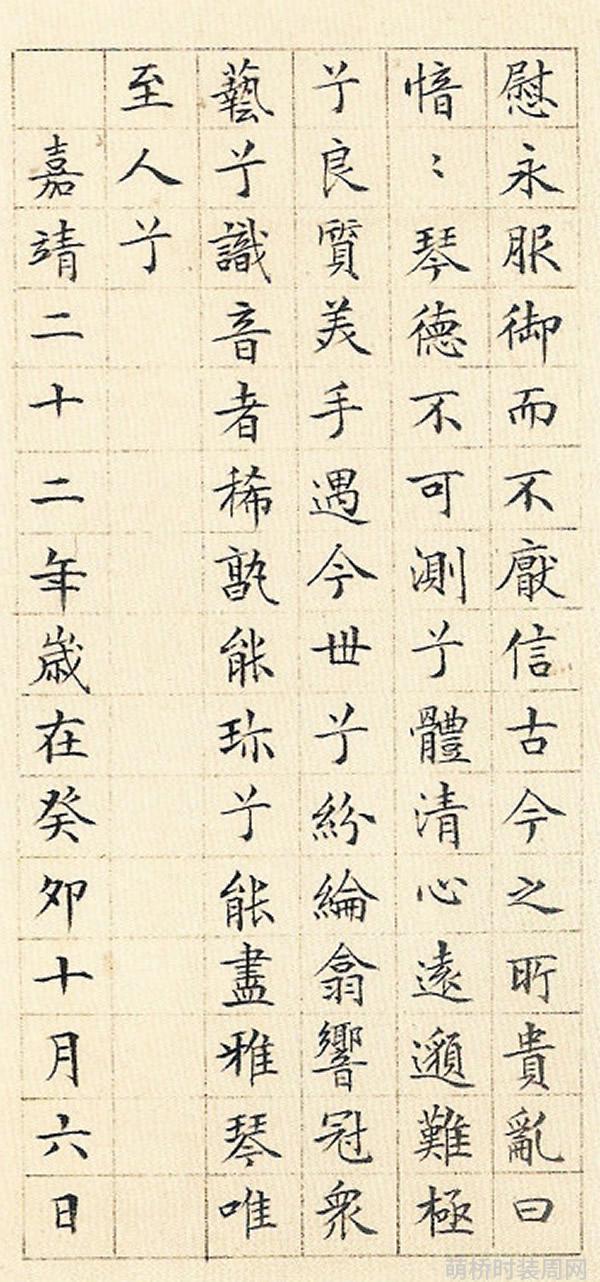 慰永服御而不厭信古今之所貴亂曰
愔〻琴德不可測兮體清心遠邈難極
兮良質美手遇今世兮紛綸翕響冠衆
藝兮識音者稀孰能珎兮能盡雅琴唯
至人兮
嘉靖二十二年歲在癸卯十月六日
萌桥时装周网